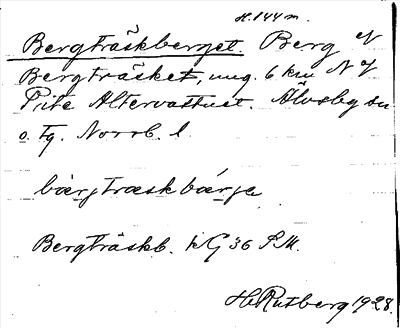 H. 144 m.
Bergträskberget. Berg N
Bergträsket, ung. 6 km N of
Pite Altervattnet. Älvsby sn
o. tg. Norrb. l.
bærjtræskbærjə
Bergträskb. kG 36 S.M.
H. Rutberg 1928.